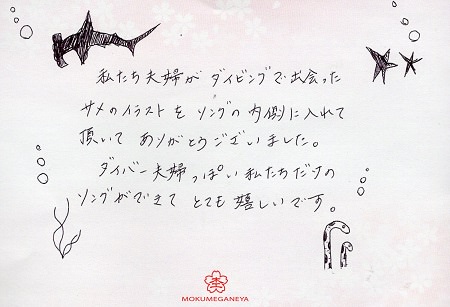 私たち夫婦が ダイビングで出会った
サメのイラストを リングの内側に入れて
頂いて ありがとうございました。
ダイバー夫婦っぽい私たちだけの
リングができて とても嬉しいです。
杢
MOKUMEGANEYA